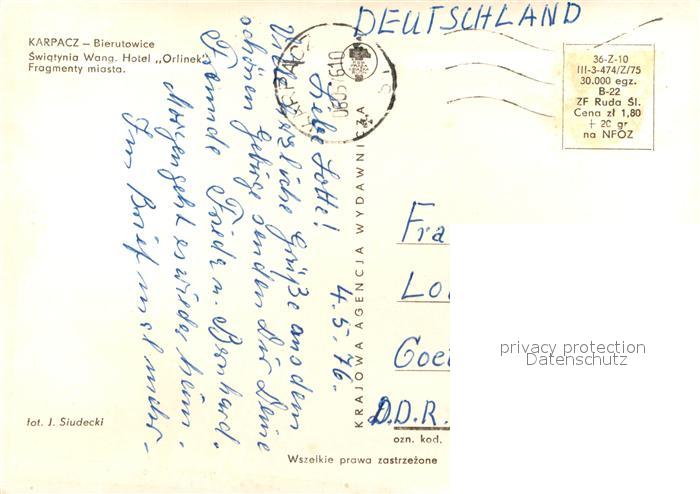 DEUTSCHLAND
KARPACZ – Bierutowice
Świątynia Wang. Hotel „Orlinek"
Fragmenty miasta.
KARPACZ
36-Z-10
III-3-474/Z/75
30.000 egz.
B-22
ZF Ruda Śl.
Cena zł 1,80
+ 20 gr
na NFOZ
4.5.76.
Liebe Lotte!
Viele herzliche Grüße aus dem
schönen Gebirge senden Dir Deine
Freunde Frieda u. Bernhard.
Morgen geht es wieder heim.
Im Brief mal mehr –
KRAJOWA AGENCJA WYDAWNICZA
Fra
Lo
Goe
D.D.R.
privacy protection
Datenschutz
fot. J. Siudecki
ozn. kod.
Wszelkie prawa zastrzeżone